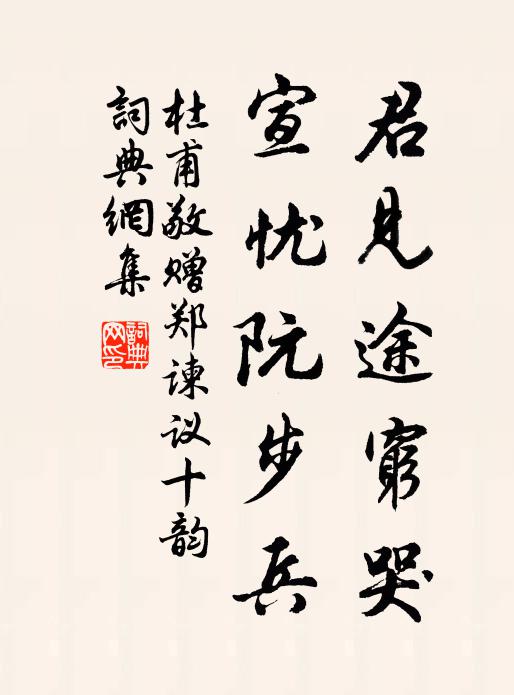 君見途窮哭
宣忧阮步兵
杜甫敬赠郑谏议十韵
詞典網集
詞典
网印